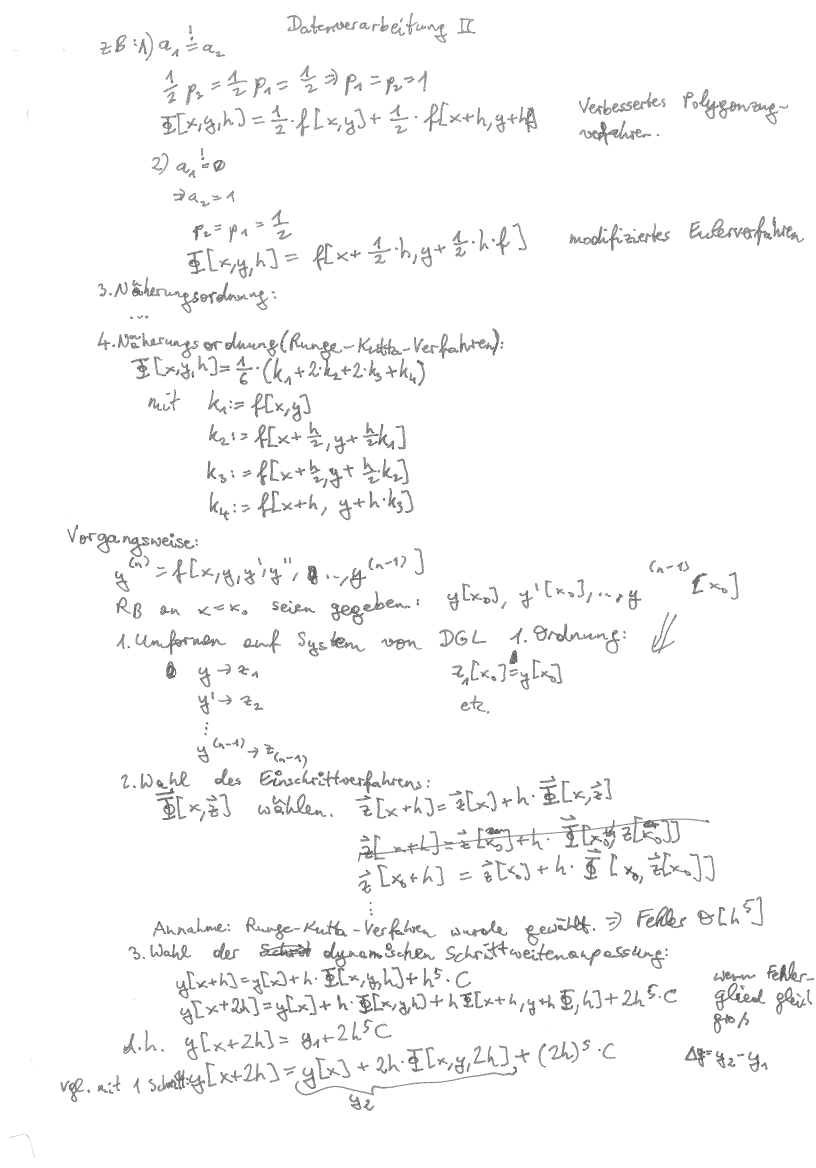 Datenverarbeitung II
zB: 1) a₁ =! a₂
1/2 p₂ = 1/2 p₁ = 1/2 ⇒ p₁ = p₂ = 1
Φ[x,y,h] = 1/2 · f[x,y] + 1/2 · f[x+h, y+hf] Verbessertes Polygonzug-
verfahren.
2) a₁ =! 0
⇒ a₂ = 1
p₂ = p₁ = 1/2
Φ[x,y,h] = f[x + 1/2 · h, y + 1/2 · h · f] modifiziertes Eulerverfahren
3. Näherungsordnung:
...
4. Näherungsordnung (Runge-Kutta-Verfahren):
Φ[x,y,h] = 1/6 · (k₁ + 2·k₂ + 2·k₃ + k₄)
mit k₁ := f[x,y]
k₂ := f[x + h/2, y + h/2 k₁]
k₃ := f[x + h/2, y + h/2 · k₂]
k₄ := f[x+h, y+h·k₃]
Vorgangsweise:
y⁽ⁿ⁾ = f[x, y, y', y'', ..., y⁽ⁿ⁻¹⁾]
RB an x = x₀ seien gegeben: y[x₀], y'[x₀], ..., y⁽ⁿ⁻¹⁾[x₀]
1. Umformen auf System von DGL 1. Ordnung: ⇓
y → z₁ z₁[x₀] = y[x₀]
y' → z₂ etc.
⋮
y⁽ⁿ⁻¹⁾ → z₍ₙ₋₁₎
2. Wahl des Einschrittverfahrens:
Φ⃗[x,z⃗] wählen. z⃗[x+h] = z⃗[x] + h · Φ⃗[x,z⃗]
z⃗[x+h] = z⃗[x₀] + h · Φ⃗[x₀, z[x₀]]
z⃗[x₀+h] = z⃗[x₀] + h · Φ⃗[x₀, z⃗[x₀]]
⋮
Annahme: Runge-Kutta-Verfahren wurde gewählt. ⇒ Fehler O[h⁵]
3. Wahl der dynamischen Schrittweitenanpassung:
y[x+h] = y[x] + h · Φ[x,y,h] + h⁵ · C wenn Fehler-
y[x+2h] = y[x] + h · Φ[x,y,h] + h Φ[x+h, y+hΦ, h] + 2h⁵ · C glied gleich
groß
d.h. y[x+2h] = y₁ + 2h⁵C
vgl. mit 1 Schritt: y[x+2h] = y[x] + 2h · Φ[x,y,2h] + (2h)⁵ · C Δy = y₂ − y₁
y₂